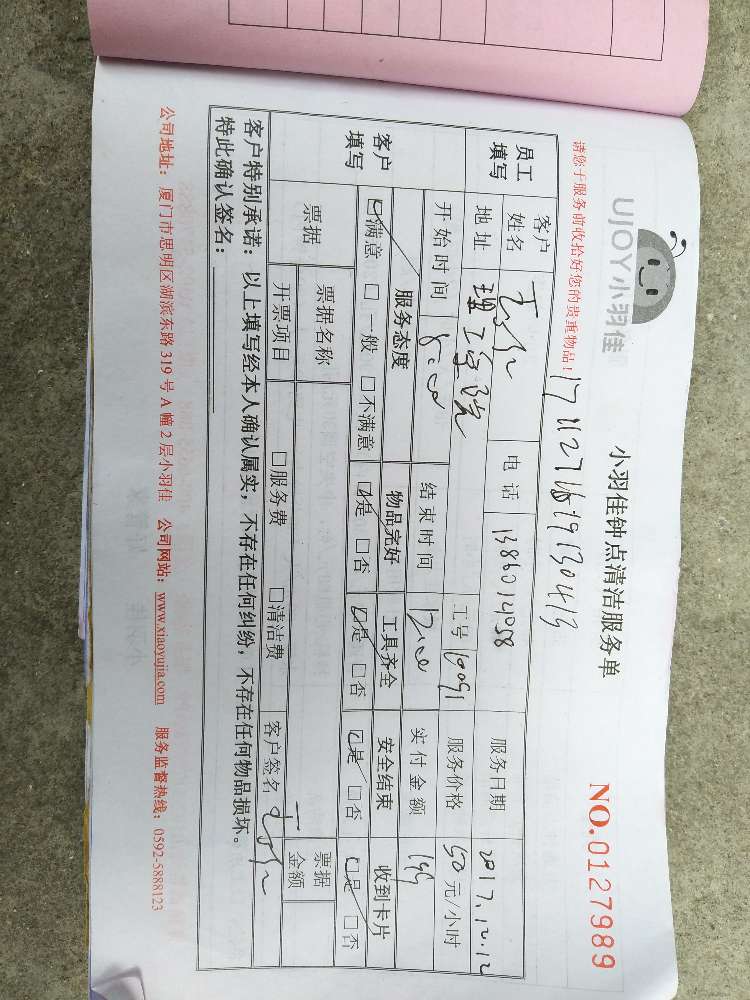 UJOY小羽佳
小羽佳钟点清洁服务单
NO.0127989
请您于服务前收拾好您的贵重物品！
员工填写
客户姓名
电话
服务日期 2017.12.12
地址 理工学院
工号
服务价格 50元/小时
开始时间 8:00
结束时间 12:00
实付金额
客户填写
服务态度 物品完好 工具齐全 安全结束 收到卡片
☑满意 □一般 □不满意 ☑是 □否 ☑是 □否 ☑是 □否 ☑是 □否
票据
票据名称
票据金额
开票项目 □服务费 □清洁费
客户签名
客户特别承诺：以上填写经本人确认属实，不存在任何纠纷，不存在任何物品损坏。
特此确认签名：
公司地址：厦门市思明区湖滨东路319号A幢2层小羽佳 公司网站：www.xiaoyujia.com 服务监督热线：0592-5888123